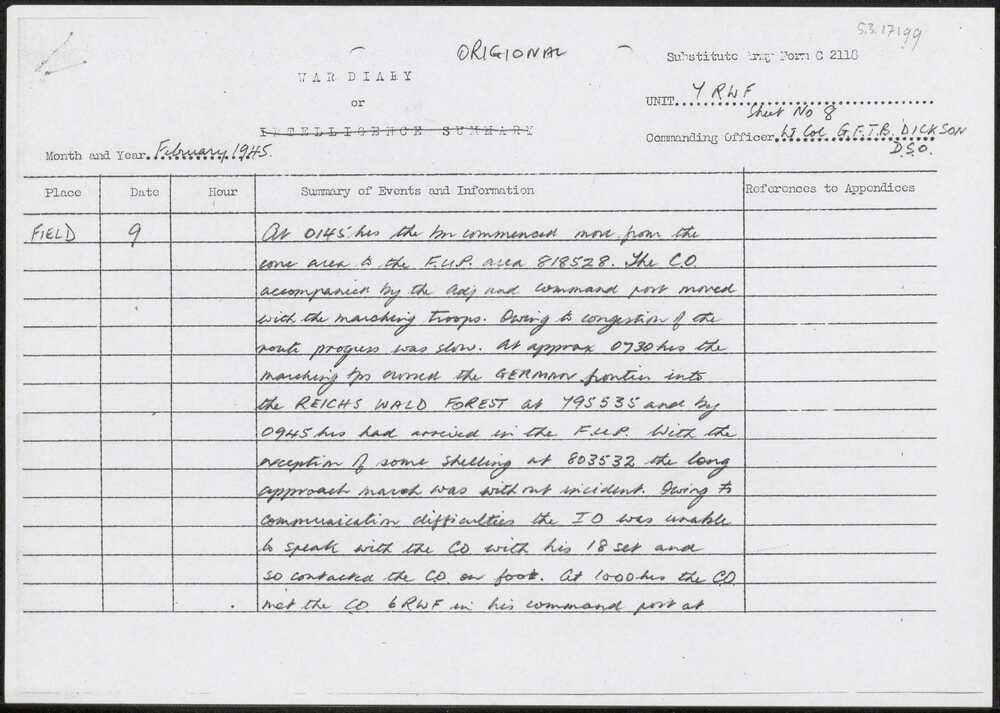 53.17199
ORIGIONAL
Substitute Army Form C 2118
WAR DIARY
or
INTELLIGENCE SUMMARY
UNIT 7 RWF
Sheet No 8
Commanding Officer Lt Col G.F.T.B. DICKSON
D.S.O.
Month and Year February 1945.
Place Date Hour Summary of Events and Information References to Appendices
FIELD 9 At 0145 hrs the bn commenced move from the
conc area to the F.U.P. area 818528. The C.O.
accompanied by the Adj and command post moved
with the marching troops. Owing to congestion of the
route progress was slow. At approx 0730 hrs the
marching tps crossed the GERMAN frontier into
the REICHS WALD FOREST at 795535 and by
0945 hrs had arrived in the F.U.P. With the
exception of some shelling at 803532 the long
approach march was without incident. Owing to
communication difficulties the I O was unable
to speak with the CO with his 18 set and
so contacted the C.O. on foot. At 1000 hrs the C.O.
met the C.O. 6 RWF in his command post at